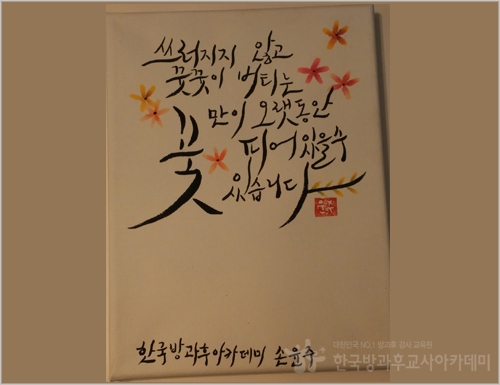 쓰러지지 않고
꿋꿋이 버티는
꽃만이 오랫동안
피어 있을 수
있습니다
한국방과후아카데미 손윤주
대한민국 NO.1 방과후 강사 교육원
한국방과후교사아카데미